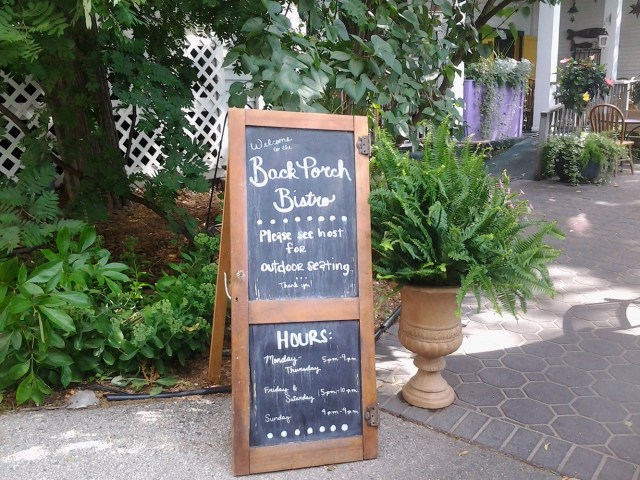 Welcome
to the
Back Porch
Bistro
Please see host
for
outdoor seating
...
Thank you!
HOURS:
Monday-
Thursday 5pm-9pm
Friday &
Saturday 5pm-10pm
Sunday 4pm-9pm